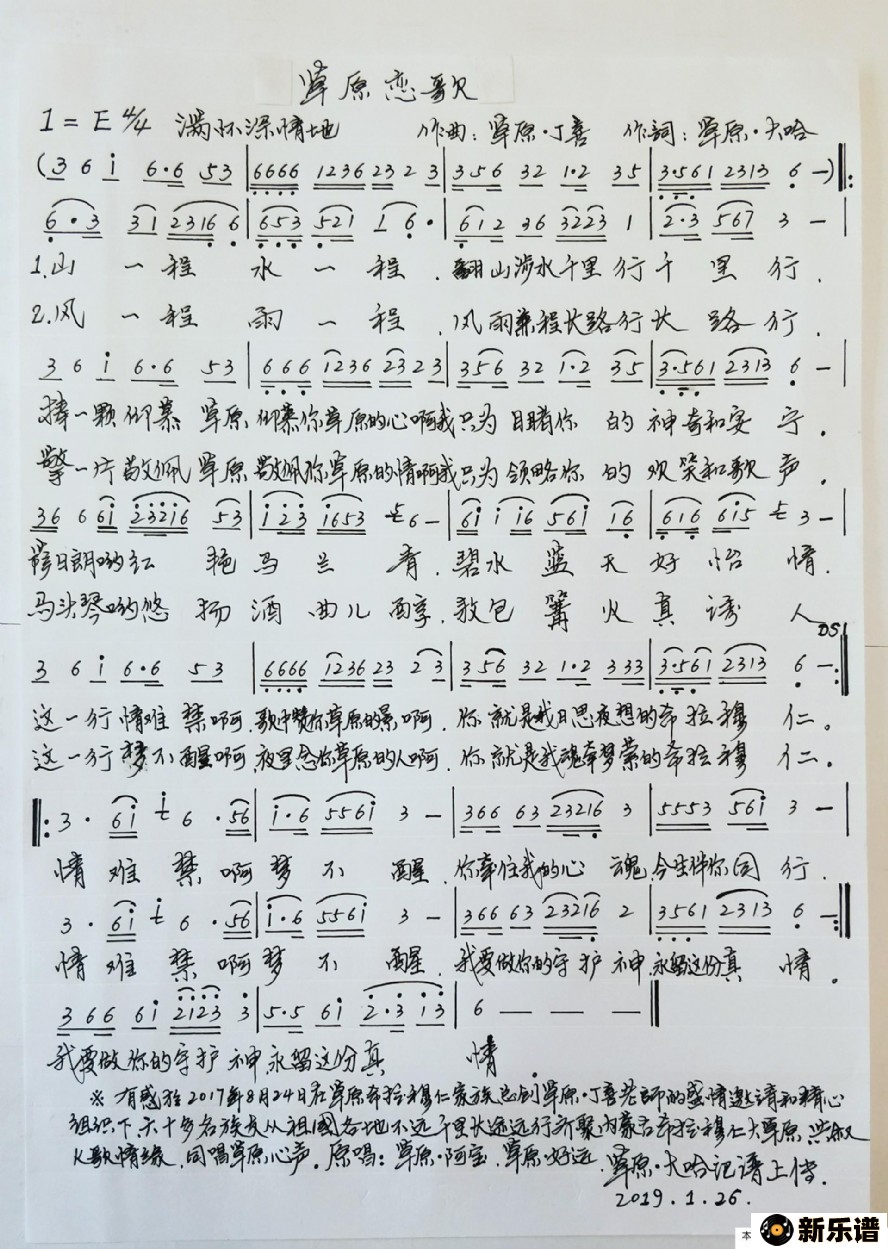 草原恋歌
1=E 4/4 满怀深情地 作曲:草原·丁喜 作詞:草原·大哈
(3 6 i 6·6 53 | 6666 1236 23 2 3 | 356 32 1·2 35 | 3·561 2313 6 —)‖:
6·3 31 23166 | 653 521 1 6· | 612 36 3223 1 | 2·3 567 3 — |
1.山一程水一程.翻山涉水千里行千里行.
2.风一程雨一程.风雨兼程长路行长路行.
3 6 i 6·6 53 | 666 1236 23 23 | 356 32 1·2 35 | 3·561 2313 6 — |
捧一颗仰慕草原仰慕你草原的心啊我只为目睹你的神奇和安宁.
擎一片敬佩草原敬佩你草原的情啊我只为领略你的欢笑和歌声.
36 6 6i 23216 53 | i23 i653 6— | 6i i i6 56i i6 | 6i6 6i5 3— |
日朗哟红艳马兰青.碧水蓝天好怡情.
马头琴哟悠扬酒曲儿醇.敖包篝火真诱人
DS
3 6 i 6·6 53 | 6666 1236 23 23 | 356 32 1·2 333 | 3·561 2313 6 — :‖
这一行情难禁啊.歌中赞你草原的景啊.你就是我日思夜想的希拉穆仁。
这一行梦不醒啊.夜里念你草原的人啊.你就是我魂牵梦萦的希拉穆仁.
‖: 3· 6i i 6· 56 | i·6 556i 3 — | 366 63 23216 3 | 5553 56i 3 — |
情难禁啊梦不醒.你牵住我的心魂.今生伴你同行.
3· 6i i 6· 56 | i·6 556i 3 — | 366 63 23216 2 | 3561 2313 6 — :‖
情难禁啊梦不醒.我要做你的守护神永留这份真情.
366 6i 2123 3 | 5·5 6i 2·3 13 | 6 — — — ‖
我要做你的守护神永留这份真情.
※有感于2017年8月24日在草原希拉穆仁家族总创草原·丁喜老師的盛情邀请和精心
组织下.六十多名族友从祖國各地不远千里长途远行齐聚内蒙古希拉穆仁大草原.共叙
K歌情缘.同唱草原心声。原唱:草原·阿宝.草原·好远.草原·大哈记谱上传.
2019.1.26.
本
新乐谱